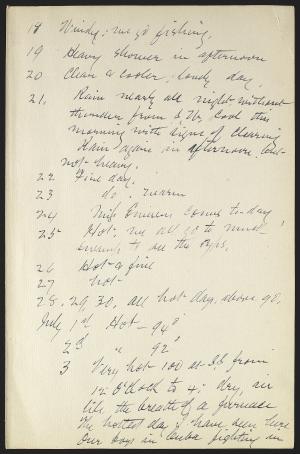 18 Windy; we go fishing.
19 Heavy shower in afternoon
20 Clear & cooler; lovely day.
21. Rain nearly all night without
thunder from 6 P.M. Cool this
morning with signs of clearing
Rain again in afternoon, but
not heavy.
22 Fine day.
23 do. warm
24 Miss comes to-day
25 Hot, we all go to
to see the
26 Hot & fine
27 hot
28, 29, 30, all hot days, above 90.
July 1st Hot - 94°
2d " 92°
3 Very hot 100 at from
12 O'Clock to 4; dry, air
like the breath of a furnace
The hottest day I have seen here
Our boys in Cuba fighting in